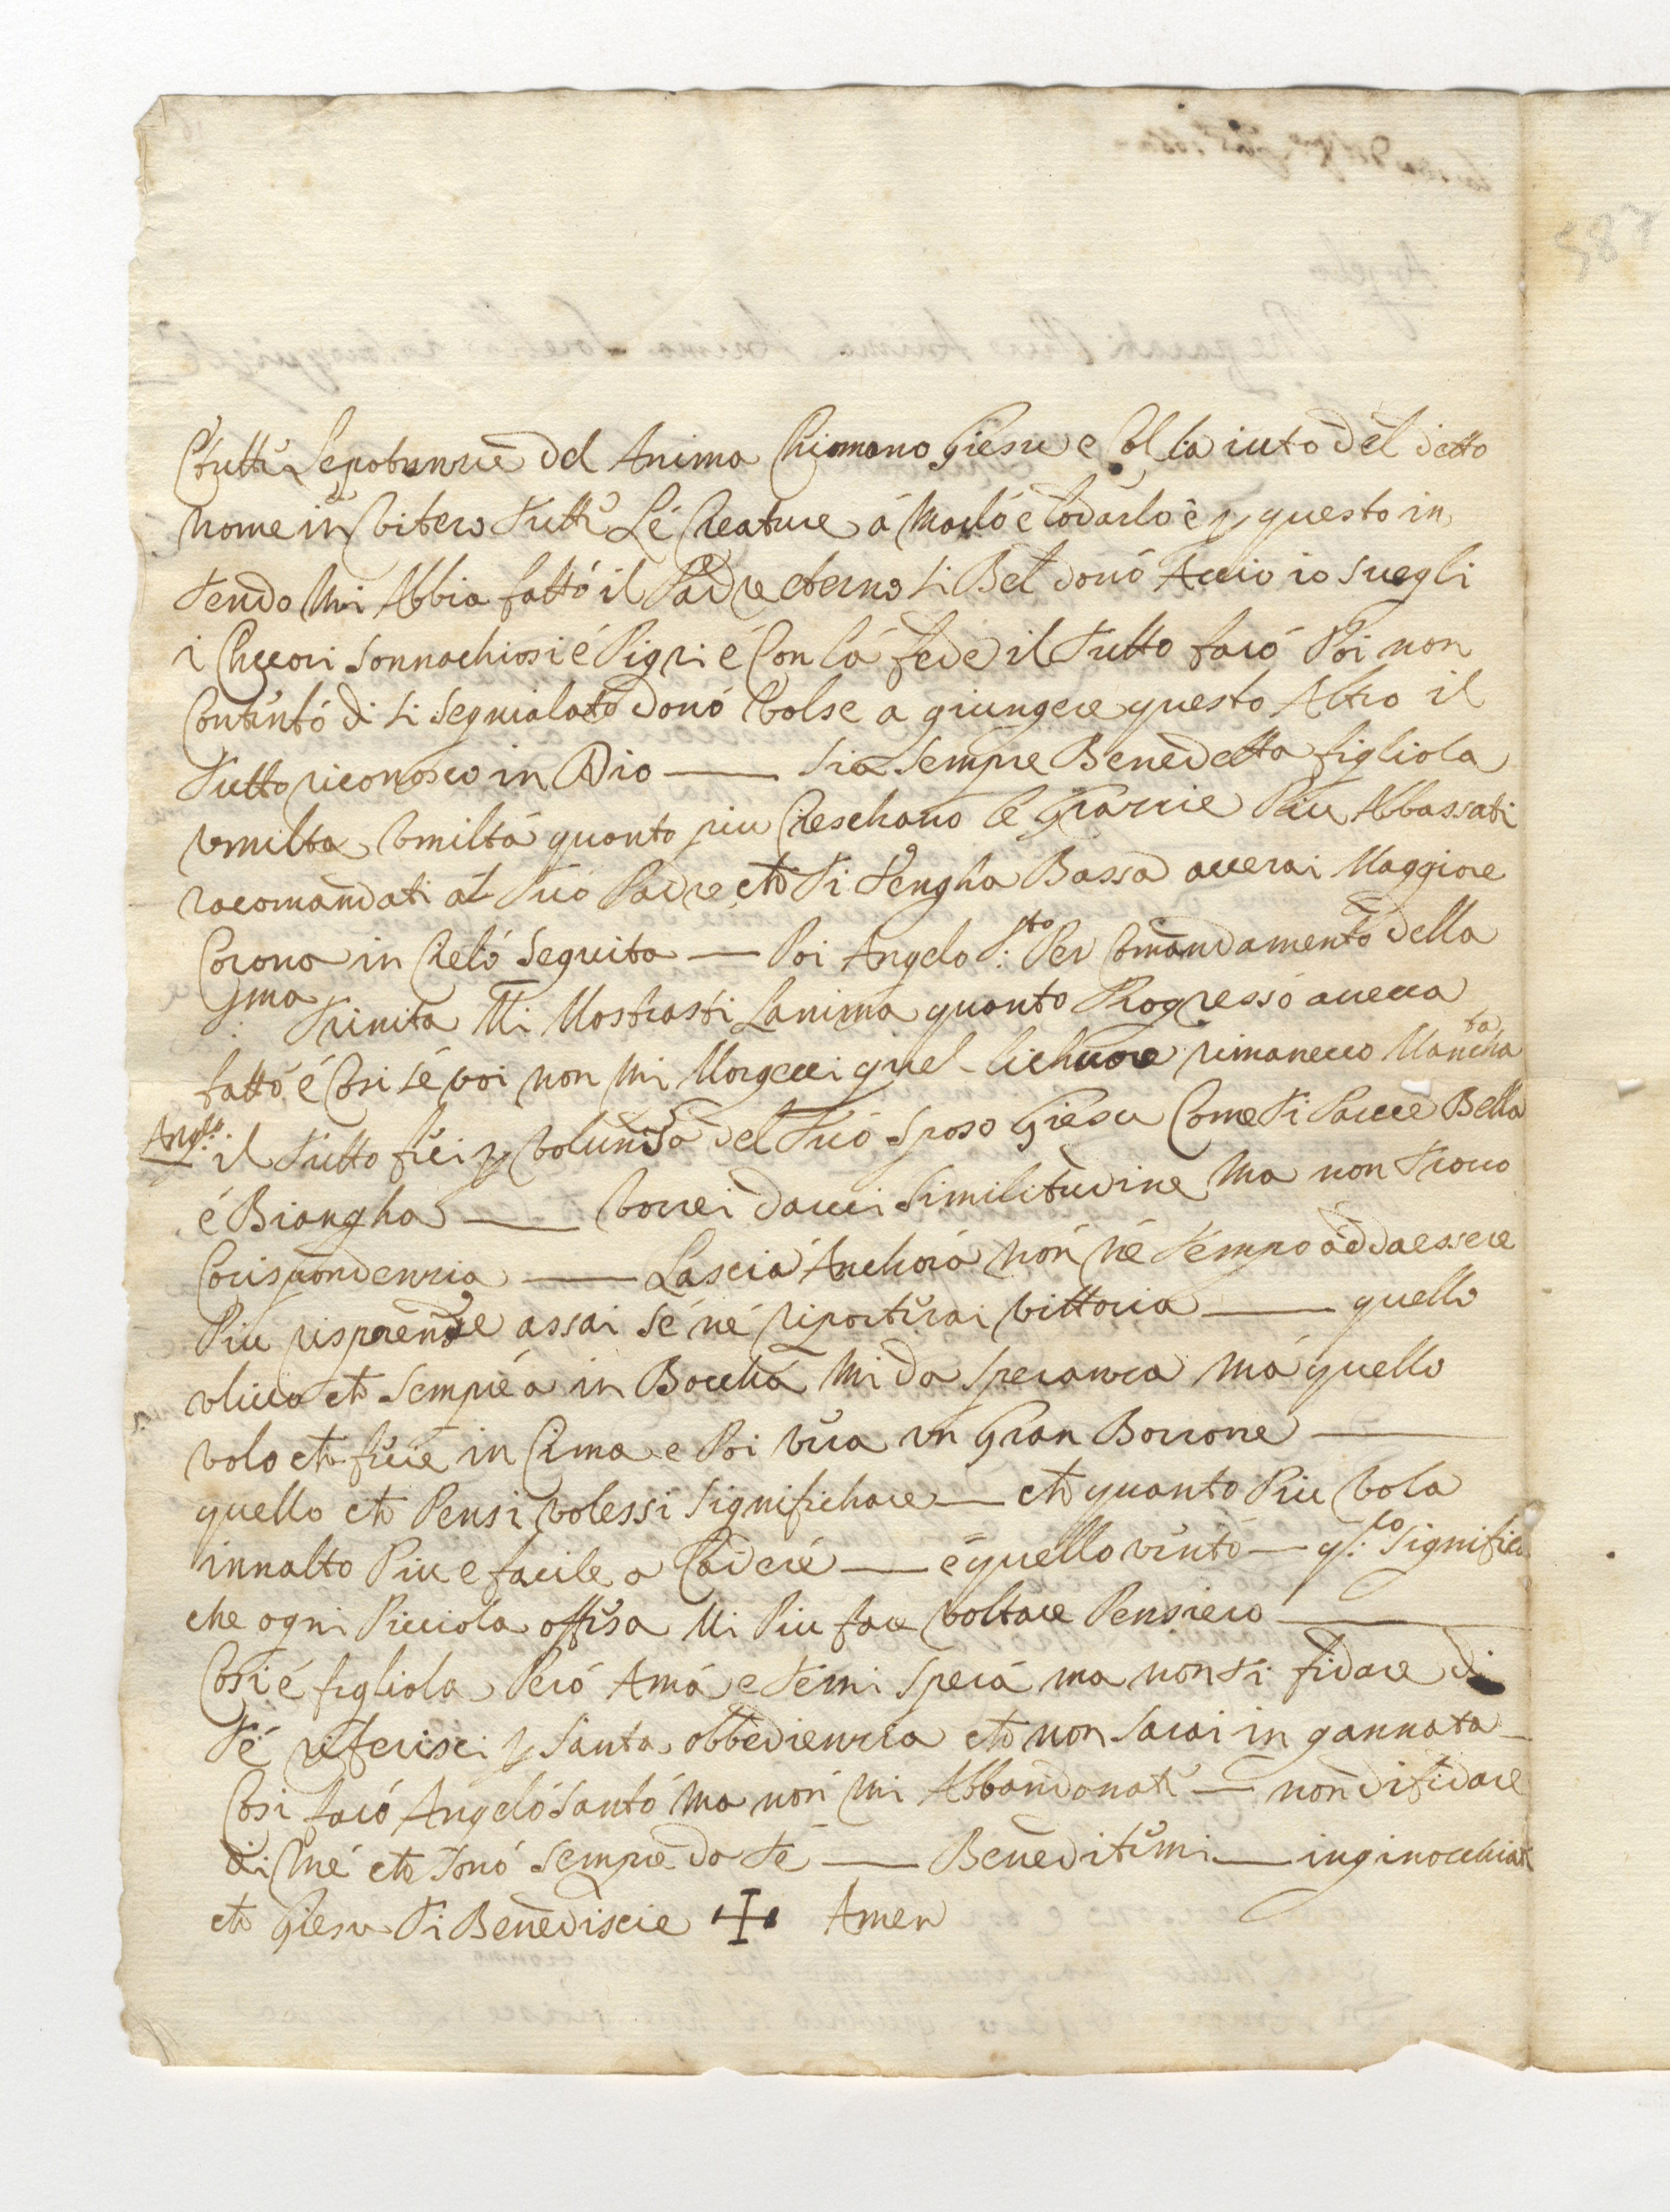 Ctutti Lepotunzie del Anima Chiamano Giesu e Col la iuto del detto
nome in vitero tutti Lé Creature á Marló é lodarlo é p questo in
tendo Mi Abbia fattó il Padre eterno si Bel donó Accio io svegli
i Chuori sonnachiosi é Pigri é Con lá fede il tutto faró Poi non
Contintó di si segnialato donó Volse a giungere questo Altro il
tutto riconosco in Dio — sia sempre Benedetta figliola
vmilta vmiltá quanto piu Creschano le Grazzie Piu Abbassati
racomandati al tuó Padre che ti tengha Bassa auerai Maggiore
Corona in Cieló seguita — Poi Angelo S:to Per Comandamentó della
Sma: Trinita Mi Mostrasti Lanima quanto Progressó aueua
fattó é Cosi sé voi non mi Porgeui quel lichuore rimaneuo Mancha
ta
Anglo: il tutto fici p voluntá del tuó Sposo Giesu Come ti Parue Bella
é Biangha — vorrei darui similitudine ma non trouo
Corispondenzia — Lascia Anchorá non né tempo á da essere
Piu risprende assai sé né riporterai vittoria — quello
vliuo che sempre á in Bocchá mi da speranza má quello
volo che fiece in Cima e Poi vi ra vn Gran Borrone —
quello che Pensi volessi significhare — che quanto Piu vola
innalto Piu e facile a Cadere — e quello vintó — q:lo significa
che ogni Picciola offisa Mi Piu fare voltare Pensiero —
Cosi é figliola Peró Amá e temi sperá ma non ti fidare di
té riferisci p santa obbedienzia che non sarai in gannata —
Cosi faró Angeló santó ma non mi Abbandonati — non difidare
di mé che sonó sempre da té — Beneditimi — inginocchiati
che Giesu ti Benediscie ✝ Amen
587